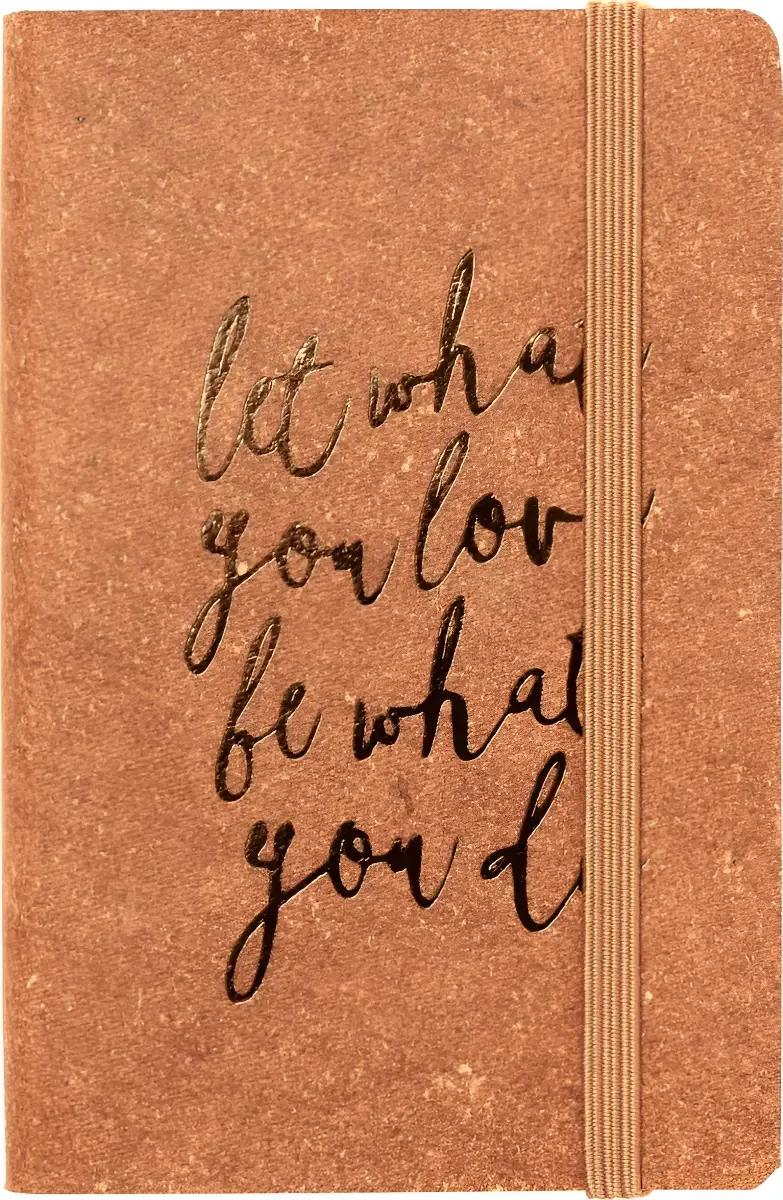 let what
you love
be what
you do